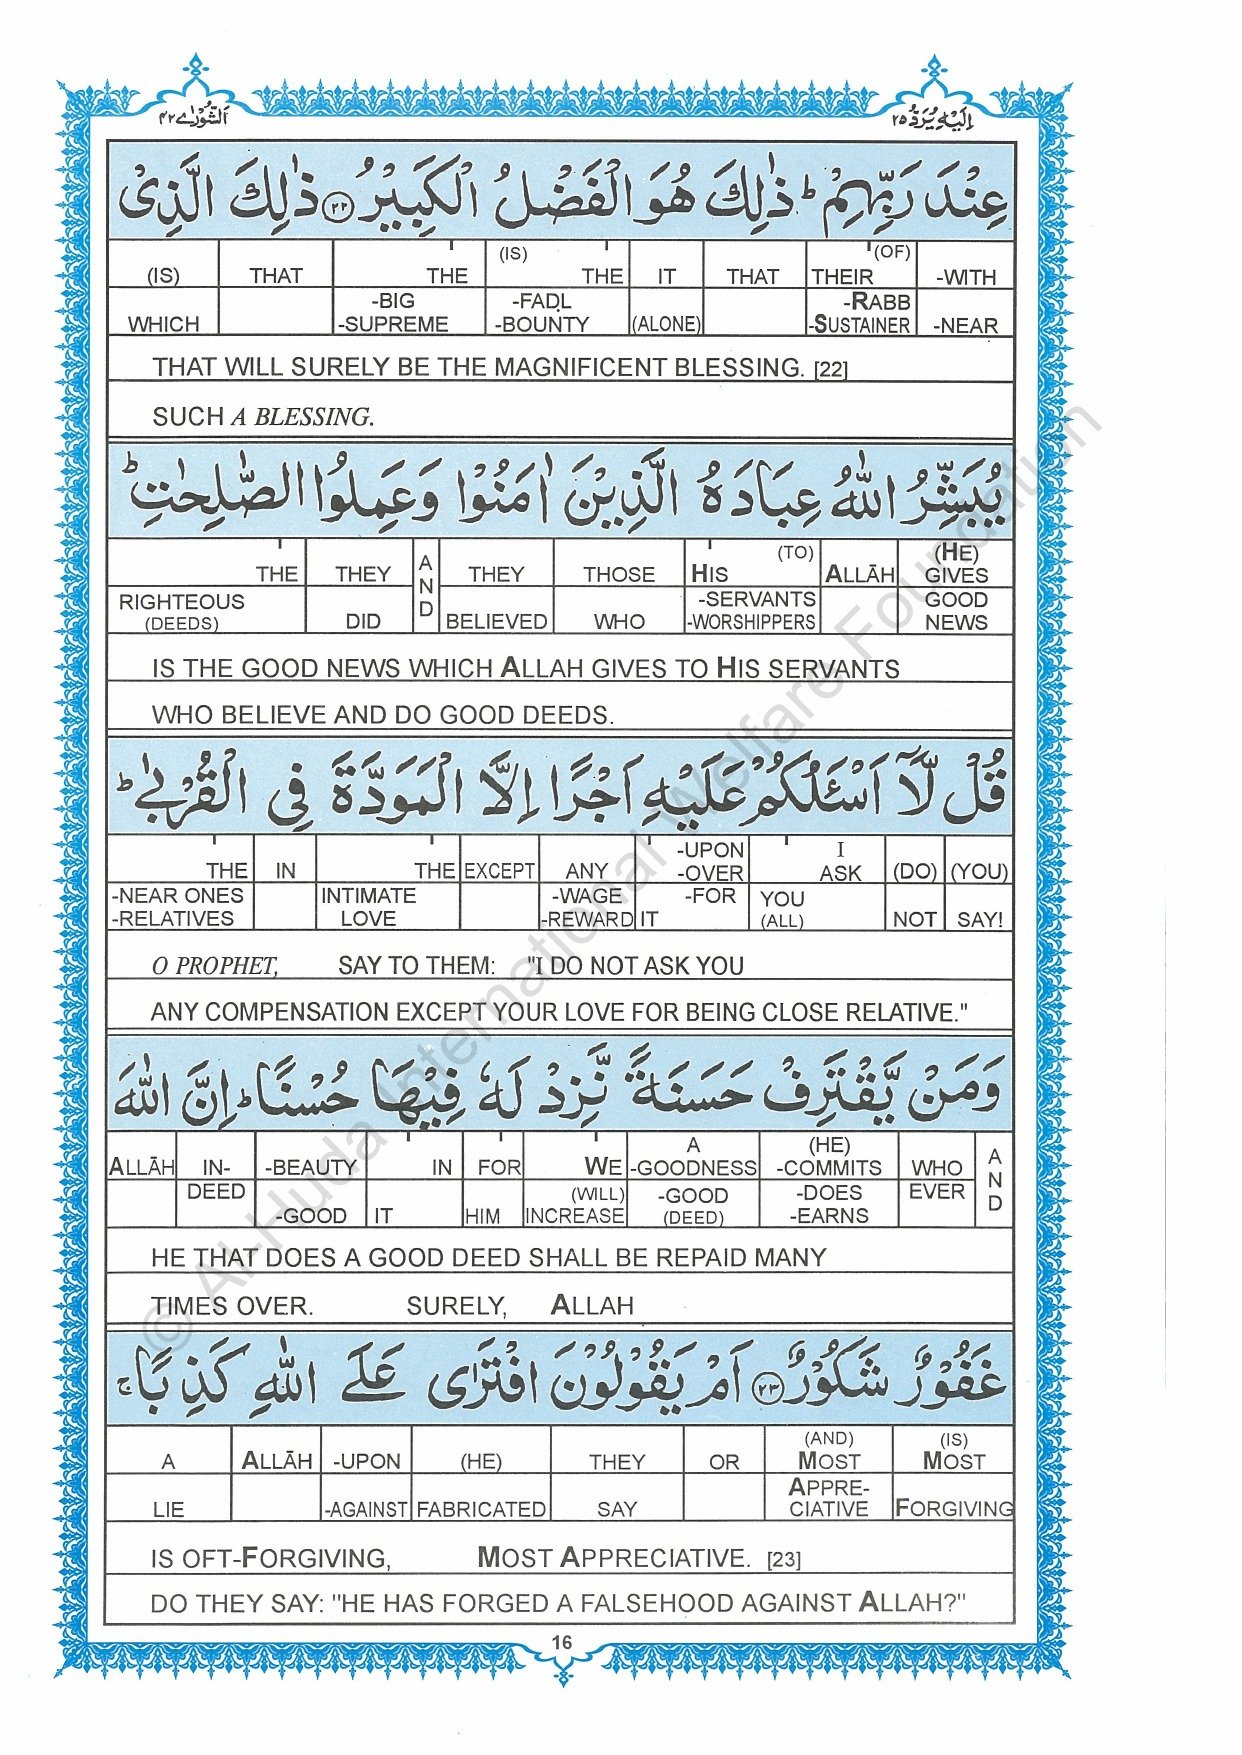 اَلشُّوْرٰے ٤٢
اِلَیْهِ یُرَدُّ ٢٥
عِنْدَ رَبِّهِمْ ؕ ذٰلِكَ هُوَ الْفَضْلُ الْكَبِیْرُ ﴿۲۲﴾ ذٰلِكَ الَّذِیْ
(IS) THAT THE (IS) THE IT THAT THEIR (OF) -WITH
WHICH -BIG -SUPREME -FAḌL -BOUNTY (ALONE) -RABB -SUSTAINER -NEAR
THAT WILL SURELY BE THE MAGNIFICENT BLESSING. [22]
SUCH A BLESSING.
یُبَشِّرُ اللّٰهُ عِبَادَهُ الَّذِیْنَ اٰمَنُوْا وَعَمِلُوا الصّٰلِحٰتِ ؕ
THE THEY AND THEY THOSE HIS (TO) ALLĀH (HE) GIVES
RIGHTEOUS (DEEDS) DID BELIEVED WHO -SERVANTS -WORSHIPPERS GOOD NEWS
IS THE GOOD NEWS WHICH ALLAH GIVES TO HIS SERVANTS
WHO BELIEVE AND DO GOOD DEEDS.
قُلْ لَّاۤ اَسْـَٔلُكُمْ عَلَیْهِ اَجْرًا اِلَّا الْمَوَدَّةَ فِی الْقُرْبٰی ؕ
THE IN THE EXCEPT ANY -UPON -OVER I ASK (DO) (YOU)
-NEAR ONES -RELATIVES INTIMATE LOVE -WAGE -REWARD IT -FOR YOU (ALL) NOT SAY!
O PROPHET, SAY TO THEM: "I DO NOT ASK YOU
ANY COMPENSATION EXCEPT YOUR LOVE FOR BEING CLOSE RELATIVE."
وَمَنْ یَّقْتَرِفْ حَسَنَةً نَّزِدْ لَهٗ فِیْهَا حُسْنًا ؕ اِنَّ اللّٰهَ
ALLĀH IN- -BEAUTY IN FOR WE A -GOODNESS (HE) -COMMITS WHO AND
DEED -GOOD IT HIM (WILL) INCREASE -GOOD (DEED) -DOES -EARNS EVER
HE THAT DOES A GOOD DEED SHALL BE REPAID MANY
TIMES OVER. SURELY, ALLAH
غَفُوْرٌ شَكُوْرٌ ﴿۲۳﴾ اَمْ یَقُوْلُوْنَ افْتَرٰی عَلَی اللّٰهِ كَذِبًا ۚ
A ALLĀH -UPON (HE) THEY OR (AND) MOST (IS) MOST
LIE -AGAINST FABRICATED SAY APPRE-CIATIVE FORGIVING
IS OFT-FORGIVING, MOST APPRECIATIVE. [23]
DO THEY SAY: "HE HAS FORGED A FALSEHOOD AGAINST ALLAH?"
16
© Al-Huda International Welfare Foundation